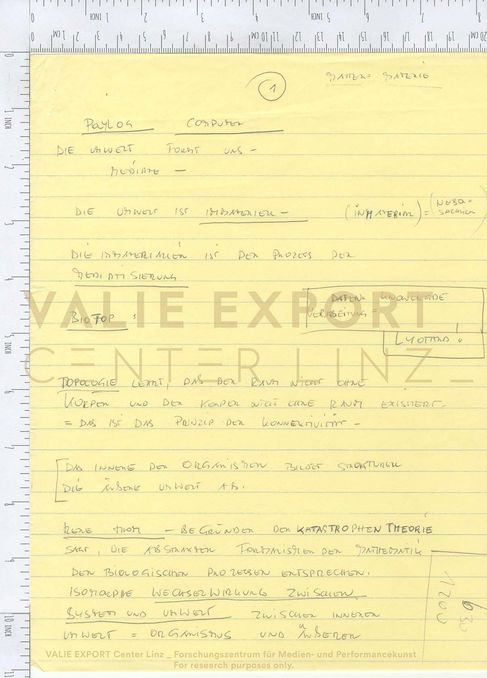 DATEN - MATERIE
1
COMPUTER
DIE UMWELT FORMT UNS -
MEDIATE -
DIE UMWELT IST IMMATERIELL -
(IMMATERIELL) = (NEBEN-
SACHLICH)
DIE IMMATERIALIEN IST DER PROZESS DER
MEDIATISIERUNG
DATEN
VERARBEITUNG -
BIOTOP :
LYOTARD !
VALIE EXPORT
CENTER LINZ_
TOPOLOGIE LEHRT, DAS DER RAUM NICHT OHNE
KÖRPER UND DER KÖRPER NICHT OHNE RAUM EXISTIERT.
= DAS IST DAS PRINZIP DER KONNEKTIVITÄT -
DAS INNERE DER ORGANISMEN BILDET STRUKTUREN
DIE ÄUßERE UMWELT AB.
RENE THOM - BEGRÜNDER DER KATASTROPHEN THEORIE
SAGT, DIE ABSTRAKTEN FORMALISMEN DER MATHEMATIK
DEN BIOLOGISCHEN PROZESSEN ENTSPRECHEN.
ISOMORPHE WECHSELWIRKUNG ZWISCHEN
SYSTEM UND UMWELT ZWISCHEN INNEREN
UMWELT = ORGANISMUS UND ÄUßEREN
VALIE EXPORT Center Linz _ Forschungszentrum für Medien- und Performancekunst
For research purposes only.